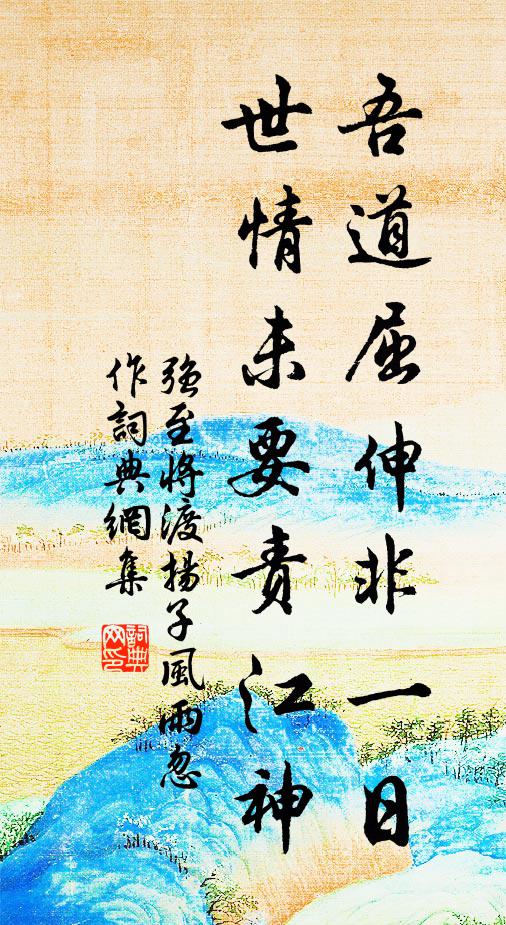 吾道屈伸非一日
世情未要責江神
強至將渡揚子風雨忽
作詞典網集
詞典
网印